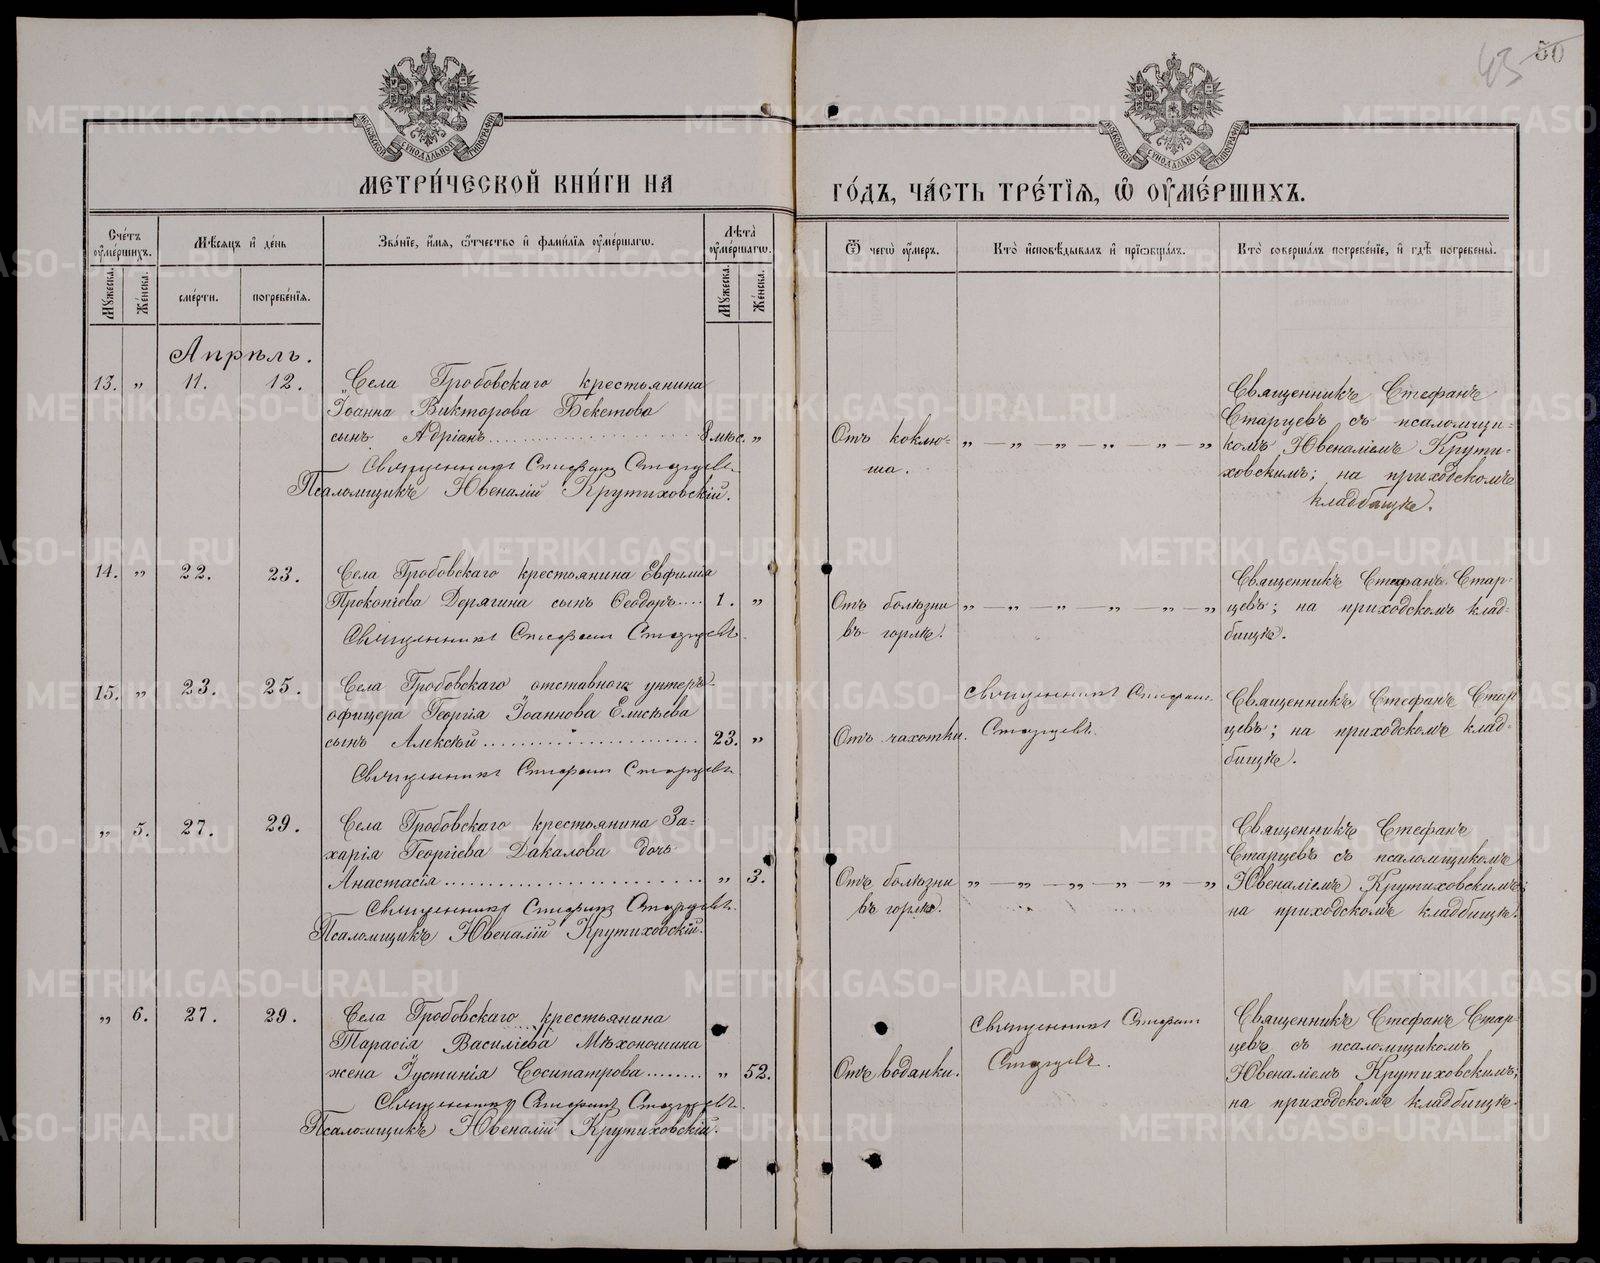 43 50
МОСКОВСКОЙ СУНОДАЛЬНОЙ ТИПОГРАФІИ
МОСКОВСКОЙ СУНОДАЛЬНОЙ ТИПОГРАФІИ
МЕТРИ́ЧЕСКОЙ КНИ́ГИ НА
ГО́ДЪ, ЧА́СТЬ ТРЕ́ТІѦ, Ѡ҆ ОУ҆МЕ́РШИХЪ.
Сче́тъ оу҆ме́ршихъ.
Мѣ́сяцъ и҆ де́нь
Зва́нїе, и҆́мѧ, ѻ҆́тчество и҆ фами́лїѧ оу҆ме́ршагѡ.
Лѣ́та оу҆ме́ршагѡ.
Ѿ чегѡ̀ оу҆́меръ.
Кто̀ и҆сповѣ́дывалъ и҆ прїѡбща́лъ.
Кто̀ соверша́лъ погребе́нїе, и҆ гдѣ̀ погребены̀.
Мꙋ́жеска.
Же́нска.
сме́рти.
погребе́нїѧ.
Мꙋ́жеска.
Же́нска.
Апрѣль.
13. „ 11. 12. Села Гробовскаго крестьянина
Іоанна Викторова Бекетова
сынъ Адріанъ 8 мѣс. „
Священникъ Стефанъ Старцевъ.
Псаломщикъ Ювеналій Крутиховскій.
Отъ коклю-
ша.
„ — „ — „ — „ — „ — „
Священникъ Стефанъ
Старцевъ съ псаломщи-
комъ Ювеналіемъ Крути-
ховскимъ; на приходскомъ
кладбищѣ.
14. „ 22. 23. Села Гробовскаго крестьянина Евфимія
Прокопіева Дерягина сынъ Ѳеодоръ 1. „
Священникъ Стефанъ Старцевъ.
Отъ болѣзни
въ горлѣ.
„ — „ — „ — „ — „ — „
Священникъ Стефанъ Стар-
цевъ; на приходскомъ клад-
бищѣ.
15. „ 23. 25. Села Гробовскаго отставнога унтеръ-
офицера Георгія Іоаннова Елисѣева
сынъ Алексѣй 23. „
Священникъ Стефанъ Старцевъ.
Отъ чахотки.
Священникъ Стефанъ
Старцевъ.
Священникъ Стефанъ Стар-
цевъ; на приходскомъ клад-
бищѣ.
„ 5. 27. 29. Села Гробовскаго крестьянина За-
харія Георгіева Дакалова дочь
Анастасія „ 3.
Священникъ Стефанъ Старцевъ.
Псаломщикъ Ювеналій Крутиховскій.
Отъ болѣзни
въ горлѣ.
„ — „ — „ — „ — „ — „
Священникъ Стефанъ
Старцевъ съ псаломщикомъ
Ювеналіемъ Крутиховскимъ;
на приходскомъ кладбищѣ.
„ 6. 27. 29. Села Гробовскаго крестьянина
Тарасія Василіева Мѣхоношина
жена Іустинія Сосипатрова „ 52.
Священникъ Стефанъ Старцевъ.
Псаломщикъ Ювеналій Крутиховскій.
Отъ водянки.
Священникъ Стефанъ
Старцевъ.
Священникъ Стефанъ Стар-
цевъ съ псаломщикомъ
Ювеналіемъ Крутиховскимъ;
на приходскомъ кладбищѣ.
METRIKI.GASO-URAL.RU